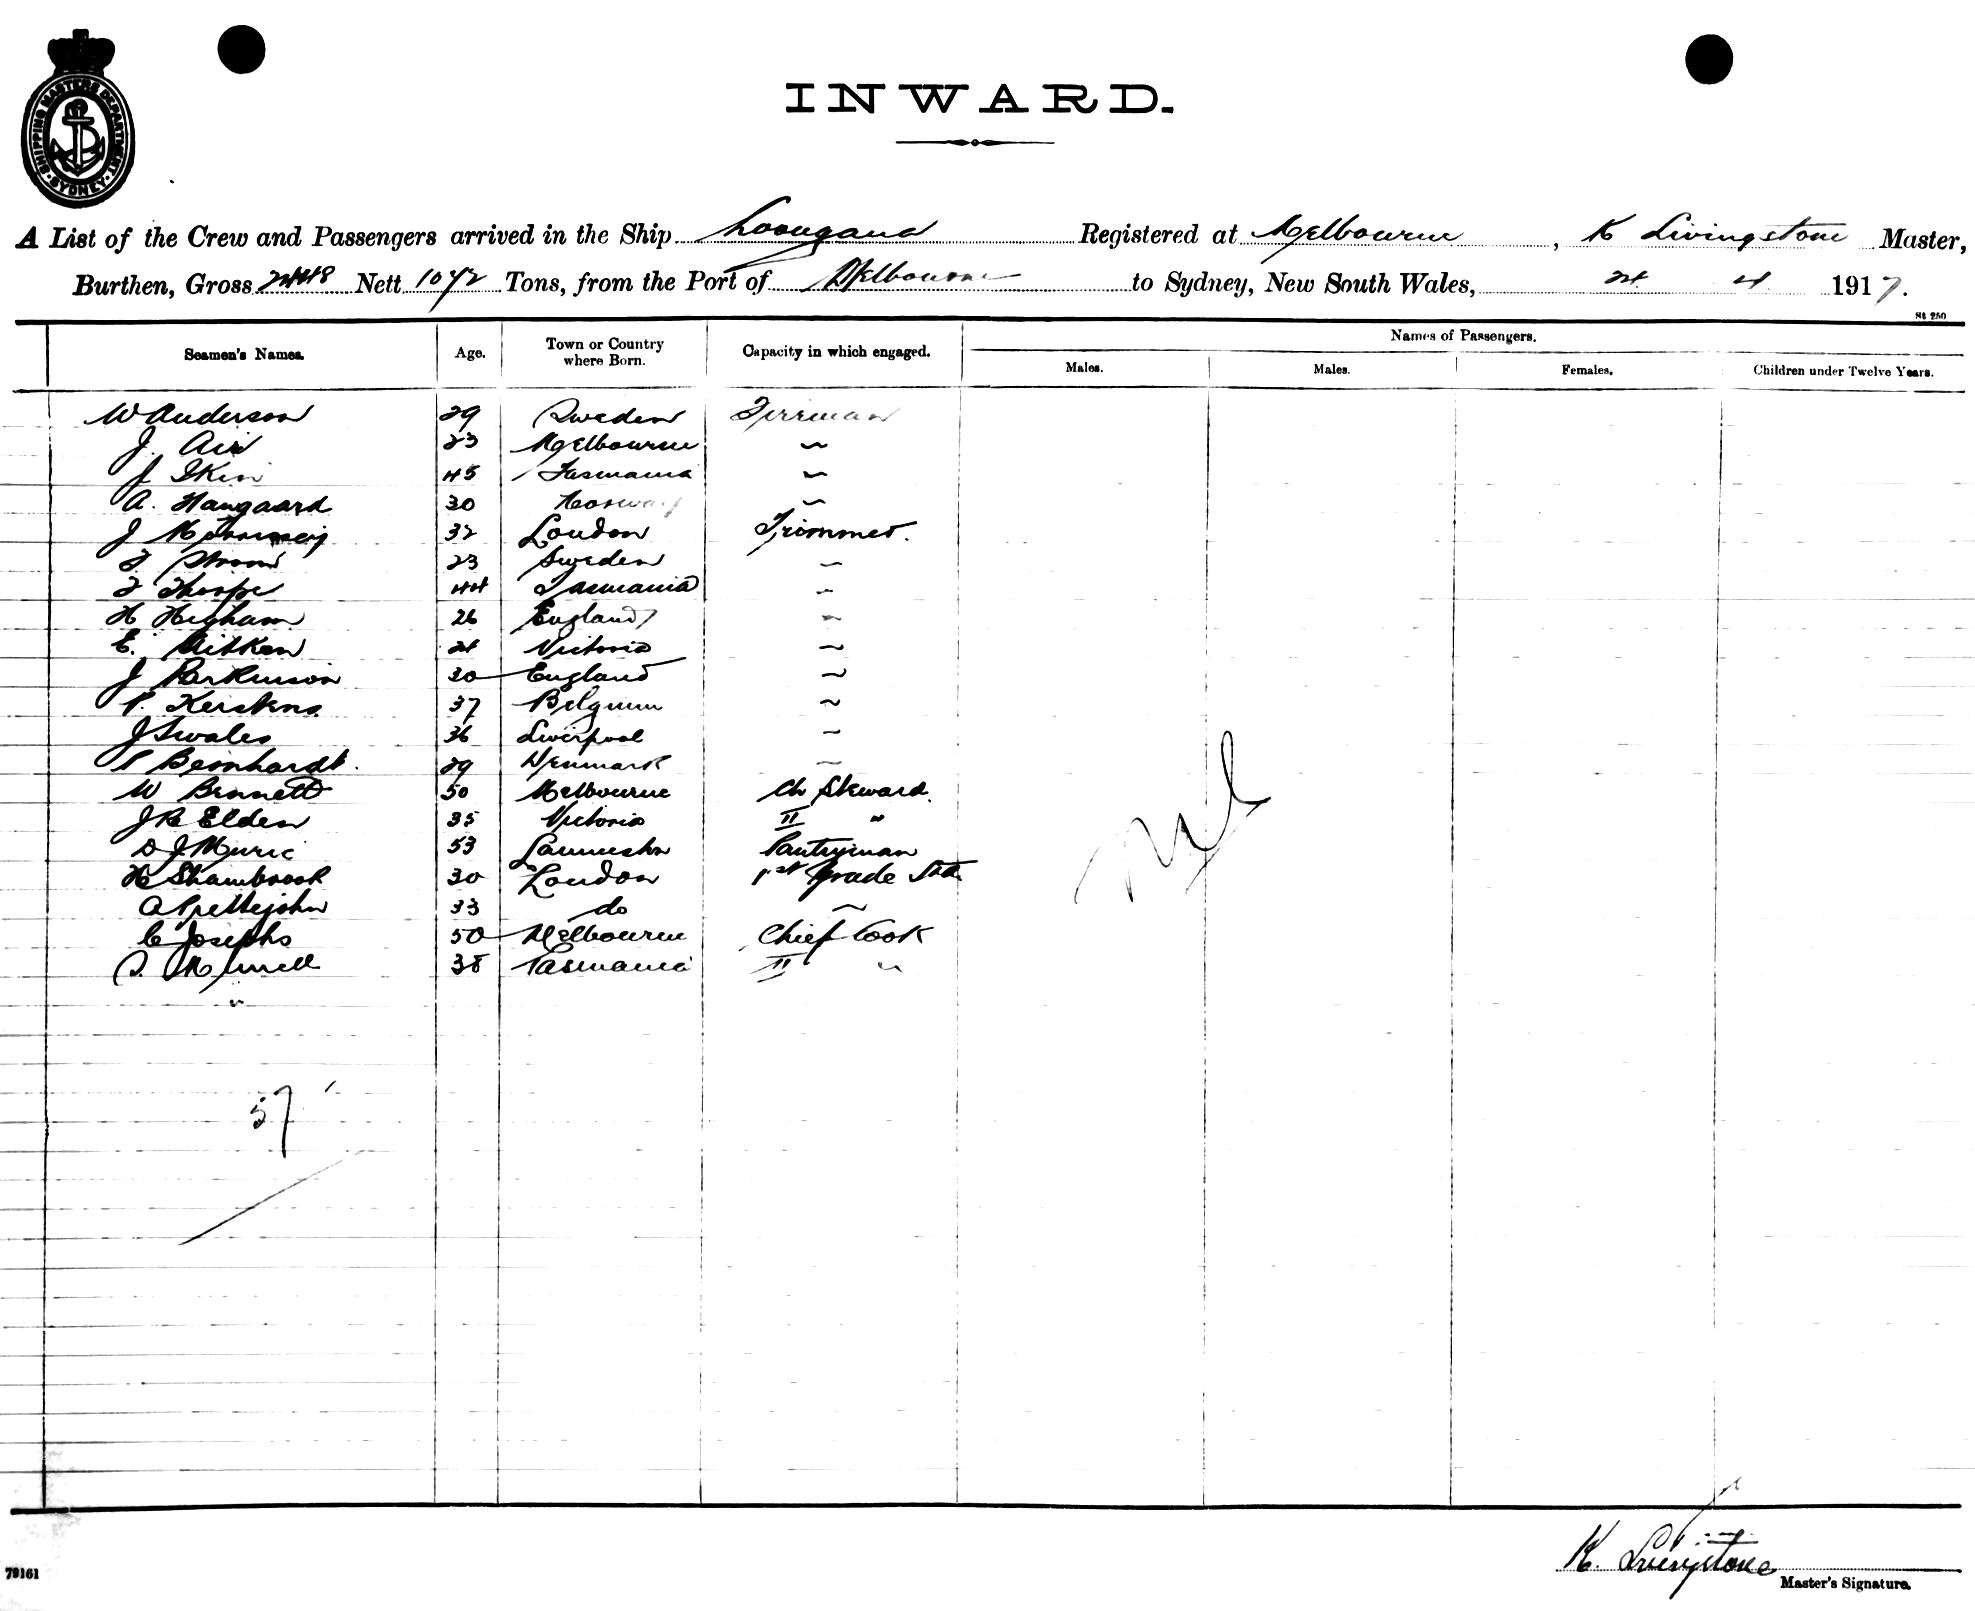 INWARD.
SHIPPING MASTERS DEPARTMENT SYDNEY
A List of the Crew and Passengers arrived in the Ship Loongana Registered at Melbourne, K Livingstone Master,
Burthen, Gross 2448 Nett 1072 Tons, from the Port of Melbourne to Sydney, New South Wales, 24 4 1917.
St 250
Seamen's Names. Age. Town or Country where Born. Capacity in which engaged. Names of Passengers.
Males. Males. Females. Children under Twelve Years.
W Anderson 29 Sweden Fireman
J. Air 23 Melbourne "
J Skin 45 Tasmania "
A. Haugaard 30 Norway "
J 32 London Trimmer.
F Strom 23 Sweden "
F Thorpe 44 Tasmania "
H Higham 26 England "
E. Aitken 24 Victoria "
J Parkinson 30 England "
P. Kerskens 37 Belgium "
J Swales 36 Liverpool "
P Bernhardt. 29 Denmark "
W Bennett 50 Melbourne Ch Steward.
J R Elden 35 Victoria II "
D J Murie 53 Launceston Pantryman
H Shambrook 30 London 1st Grade Std
A Prettejohn 33 do "
C Josephs 50 Melbourne Chief Cook
38 Tasmania II "
"
Nil
57
K. Livingstone
Master's Signature.
79161